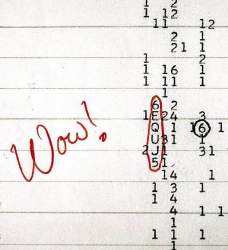 1 2
1 12
11 12
2
2 1 1
1 2
1 16 1
1 1 1
1
6 2
1 E 24 3
Q 1 6 1 1
U 31
2 J 1 31
5 1
14 1
1 3 1
1 4
4 1 1
1
1 1 1
Wow!